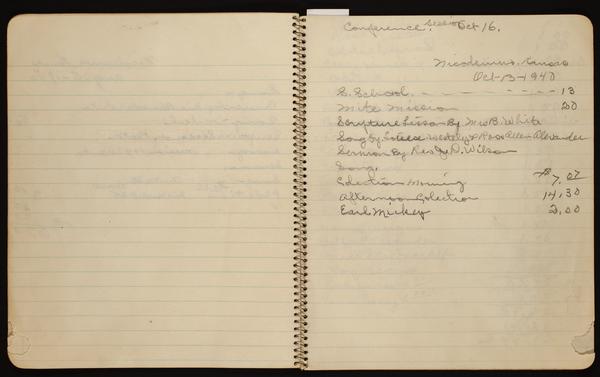 Conference. Session Oct 16.
Nicodemus, Kansas
Oct-13-1940
S. School. - - - - - - - - 13
Mite Mission 20
Scripture Lisson By Mrs B. White
Song By Wesley & Ross Allen Alexander
Sermon By Rev J. D. Wilson
Song.
Colection Morning $7.07
Afternoon Colection 14.30
Earl Mickey 2.00